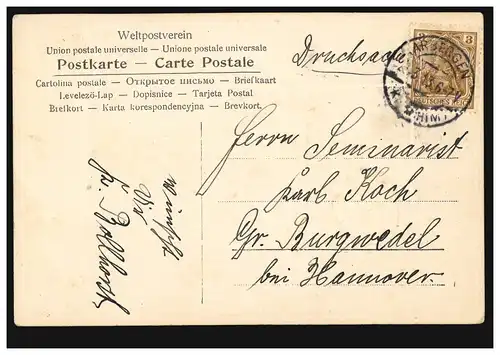 Weltpostverein
Union postale universelle — Unione postale universale
Postkarte — Carte Postale
Cartolina postale — Открытое письмо — Briefkaart
Levelező-Lap — Dopisnice — Tarjeta Postal
Brefkort — Karta korespondencyjna — Brevkort.
Drucksache
3
DEUTSCHES REICH
Herrn Seminarist
Karl Koch
Gr. Burgwedel
bei Hannover.
wünscht
Dir